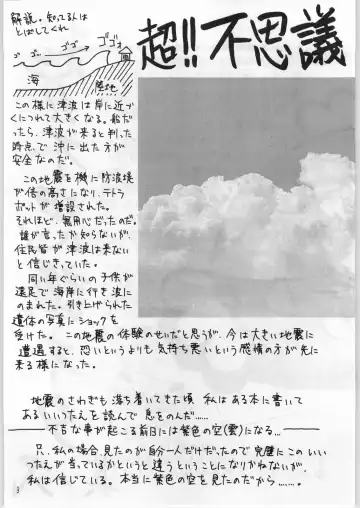 解説。知ってる人は
とばしてくれ
ゴゴゴ
海
陸地
超!!不思議
この様に津波は岸に近づ
くにつれて大きくなる。船だ
ったら、津波が来ると判った
時点で沖に出た方が
安全なのだ。
この地震を機に防波堤
が倍の高さになり、テトラ
ポットが増設された。
それほど、無用心だったのだ。
誰が言ったか知らないが、
住民皆が津波は来ない
と信じきっていた。
同い年ぐらいの子供が
遠足で海岸に行き波に
のまれた。引き上げられた
遺体の写真にショックを
受けた。この地震の体験のせいだと思うが、今は大きい地震に
遭遇すると、恐いというよりも気持ち悪いという感情の方が先に
来る様になった。
地震のさわぎも落ち着いてきた頃 私はある本に書いて
あるいいつたえを読んで息をのんだ……
――不吉な事が起こる前日には紫色の空(雲)になる…――
只、私の場合、見たのが自分一人だけだったので完璧にこのいい
つたえが当っているかというと違うということになりかねないが、
私は信じている。本当に紫色の空を見たのだから……。
3